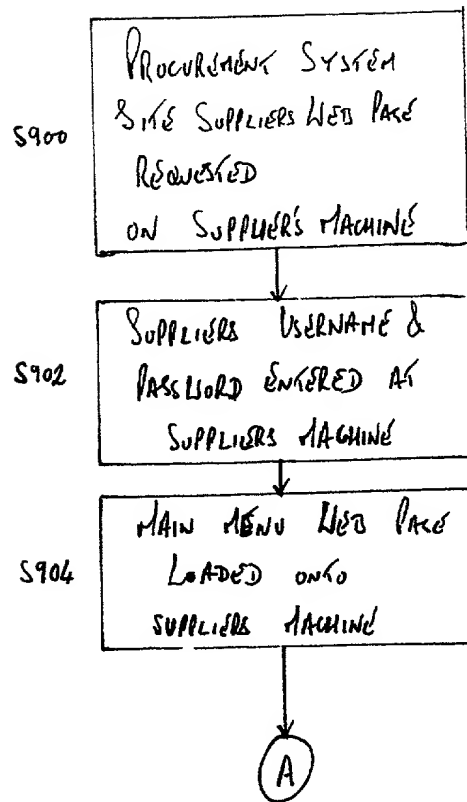 PROCUREMENT SYSTEM
SITE SUPPLIERS WEB PAGE
S900
REQUESTED
ON SUPPLIER'S MACHINE
SUPPLIERS USERNAME &
S902
PASSWORD ENTERED AT
SUPPLIERS MACHINE
MAIN MENU WEB PAGE
S904
LOADED ONTO
SUPPLIERS MACHINE
A